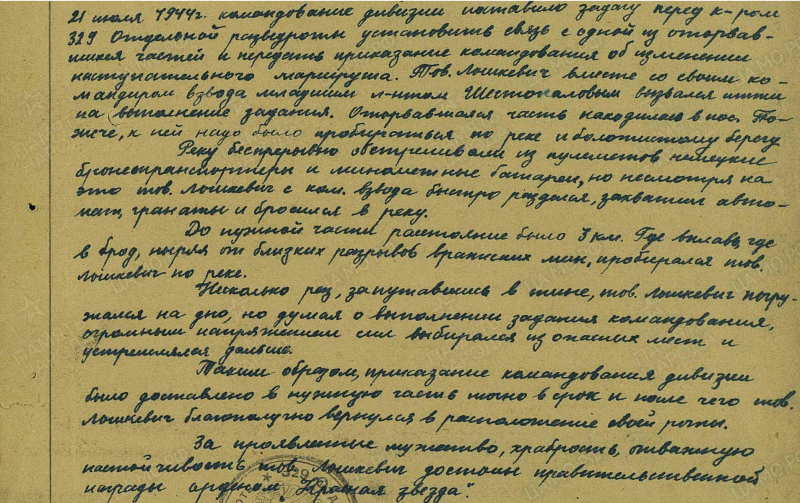 21 июля 1944г. командование дивизии поставило задачу перед к-ром
329 Отдельной разведроты установить связь с одной из оторвав-
шихся частей и передать приказание командования об изменении
наступательного маршрута. Тов. Лошкевич вместе со своим ко-
мандиром взвода младшим л-нтом Шестопаловым вызвался итти
на выполнение задания. Оторвавшаяся часть находилась в нос. По-
жече, к ней надо было пробираться по реке и болотистому берегу
Реку беспрерывно обстреливали из пулеметов немецкие
бронетранспортеры и минометные батареи, но несмотря на
это тов. Лошкевич с ком. взвода быстро разделся, захватил авто-
мат, гранаты и бросился в реку.
До нужной части расстояние было 3 км. Где вплавь, где
в брод, ныряя от близких разрывов вражеских мин, пробирался тов.
Лошкевич по реке.
Несколько раз, запутавшись в тине, тов. Лошкевич погру-
жался на дно, но думая о выполнении задания командования,
огромным напряжением сил выбирался из опасных мест и
устремлялся дальше.
Таким образом, приказание командования дивизии
было доставлено в нужную часть точно в срок и после чего тов.
Лошкевич благополучно вернулся в расположение своей роты.
За проявленные мужество, храбрость, отважную
настойчивость тов. Лошкевич достоин правительственной
награды орденом "Красная звезда".